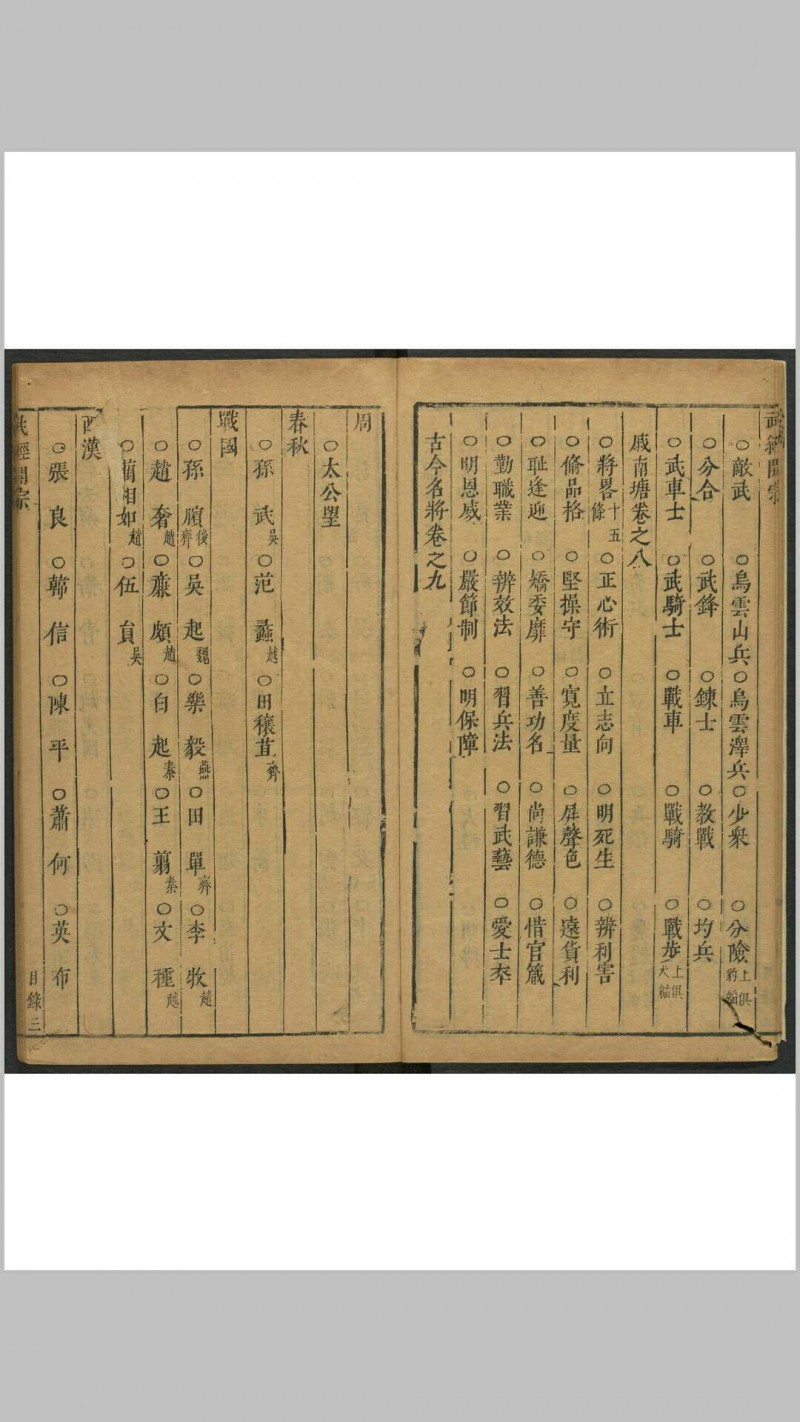 武經開宗
○敵武 ○烏雲山兵 ○烏雲澤兵 ○少衆 ○分險 上俱豹韜
○分合 ○武鋒 ○鍊士 ○教戰 ○均兵
○武車士 ○武騎士 ○戰車 ○戰騎 ○戰步 上俱犬韜
戚南塘卷之八
○將畧 十五條 ○正心術 ○立志向 ○明死生 ○辨利害
○脩品格 ○堅操守 ○寬度量 ○屏聲色 ○遠貨利
○耻逢迎 ○矯委靡 ○善功名 ○尚謙德 ○惜官箴
○勤職業 ○辨效法 ○習兵法 ○習武藝 ○愛士卒
○明恩威 ○嚴節制 ○明保障
古今名將卷之九
周
○太公望
春秋
○孫武 吳 ○范蠡 越 ○田穰苴 齊
戰國
○孫臏 後齊 ○吳起 魏 ○樂毅 燕 ○田單 齊 ○李牧 趙
○趙奢 趙 ○廉頗 趙 ○白起 秦 ○王翦 秦 ○文種 越
○藺相如 趙 ○伍員 吳
西漢
○張良 ○韓信 ○陳平 ○蕭何 ○英布
武經開宗 目錄 三